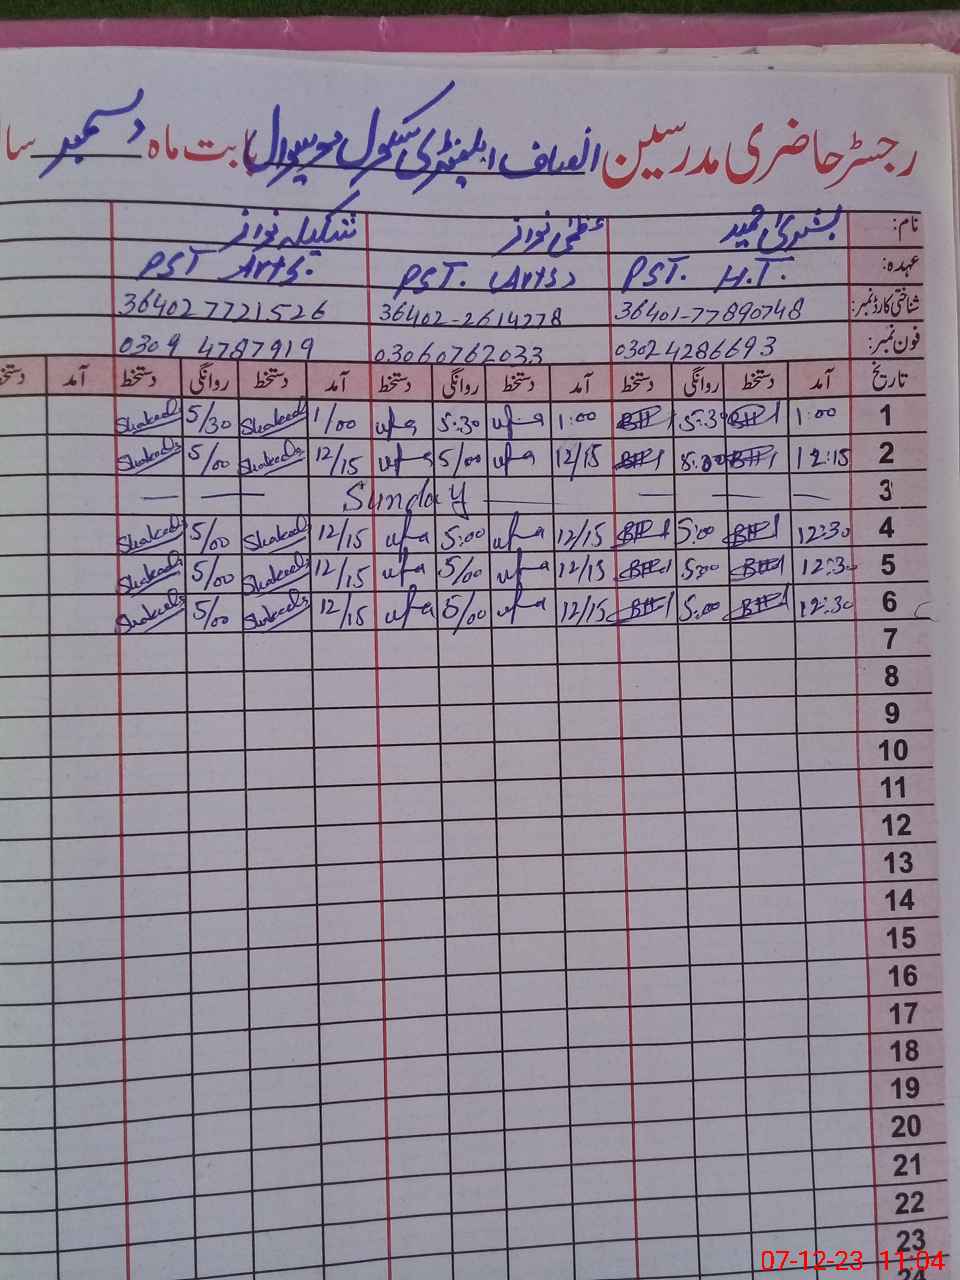 رجسٹر حاضری مدرسین انصاف ایلیمنٹری سکول موسیوال بابت ماہ دسمبر سا
نام: بشریٰ حمید عظمیٰ نواز شکیلہ نواز
عہدہ: PST. H.T. PST. (Arts) PST Arts.
شناختی کارڈ نمبر: 36401-77890748 36402-2614278 364027721526
فون نمبر: 03024286693 03060762033 0309 4787919
تاریخ آمد دستخط روانگی دستخط آمد دستخط روانگی دستخط آمد دستخط روانگی دستخط آمد دستخط
1 1:00 5:3 1:00 5:30 1/00 Shakeela 5/30 Shakeela
2 12:15 5:00 12/15 5/00 12/15 Shakeela 5/00 Shakeela
3 Sunday
4 12:30 5:00 12/15 5:00 12/15 Shakeela 5/00 Shakeela
5 12:3 5:00 12/15 5/00 12/15 Shakeela 5/00 Shakeela
6 12:30 5:00 12/15 5/00 12/15 Shakeela 5/00 Shakeela
7
8
9
10
11
12
13
14
15
16
17
18
19
20
21
22
23
24
07-12-23 11:04